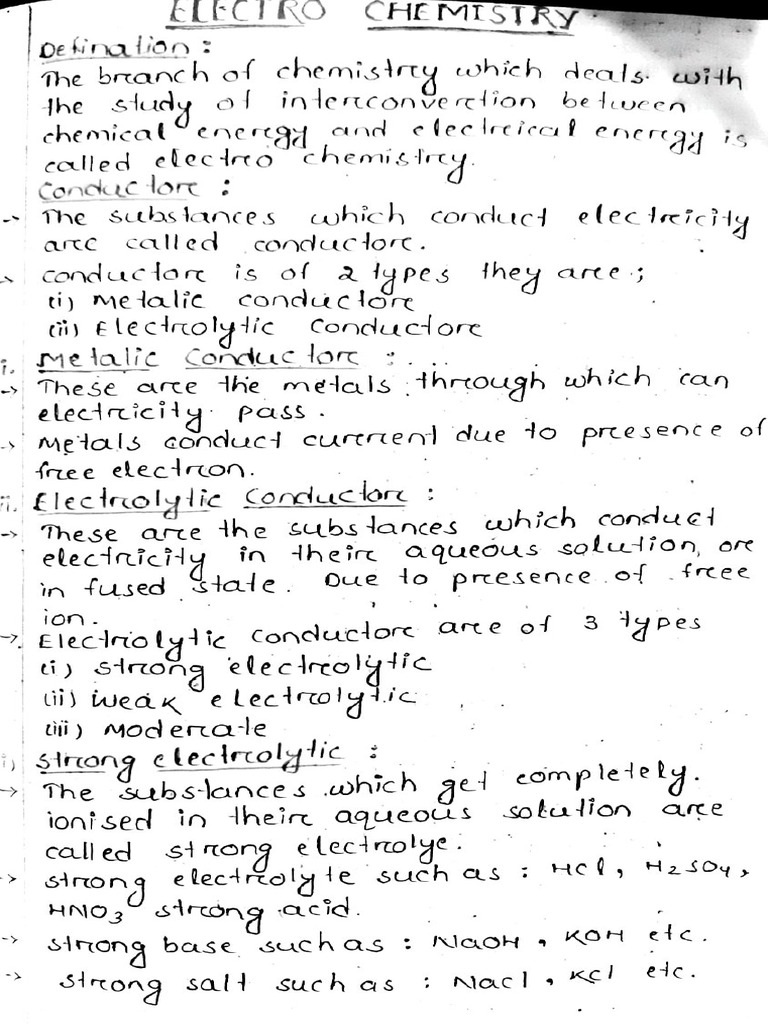 ELECTRO CHEMISTRY
Defination :
The branch of chemistry which deals with
the study of interconvertion between
chemical energy and electreical energy is
called electro chemistry.
Conductore :
→ The substances which conduct electricity
are called conductore.
→ conductore is of 2 types they are ;
(i) Metalic conductore
(ii) Electrolytic conductore
i. Metalic Conductore :
→ These are the metals through which can
electricity pass.
→ Metals conduct current due to presence of
free electron.
ii. Electrolytic Conductore :
→ These are the substances which conduct
electricity in their aqueous solution, or
in fused state. Due to presence of free
ion.
→ Electrolytic conductore are of 3 types
(i) strong electrolytic
(ii) weak electrolytic
(iii) Moderate
i) Strong electrolytic :
→ The substances which get completely.
ionised in their aqueous solution are
called strong electrolye.
→ strong electrolyte such as : HCl, H2SO4,
HNO3 strong acid.
→ strong base such as : NaOH, KOH etc.
→ strong salt such as : Nacl, KCl etc.